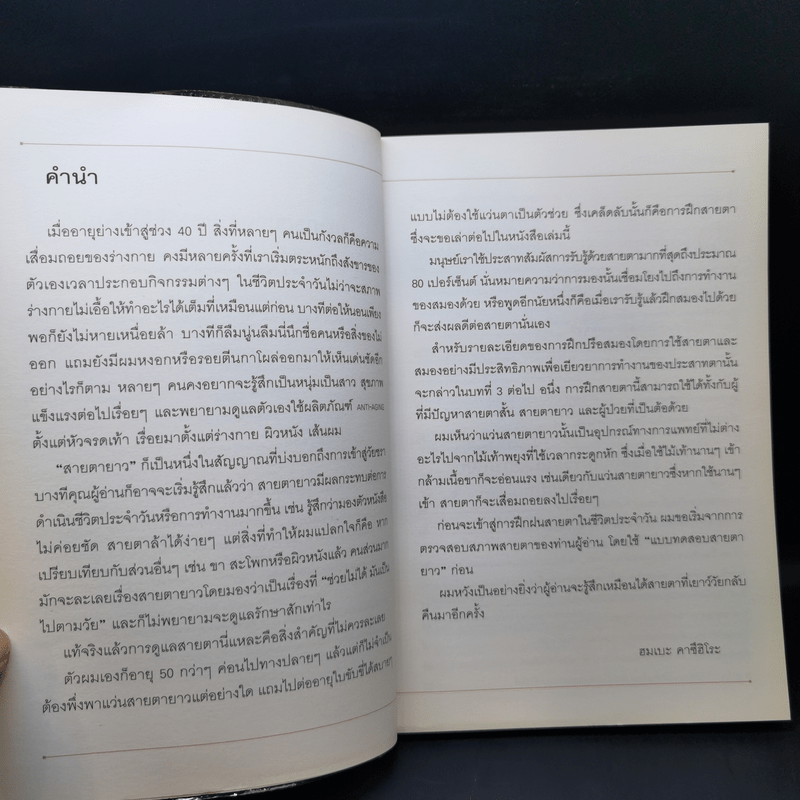 คำนำ
เมื่ออายุย่างเข้าสู่ช่วง 40 ปี สิ่งที่หลายๆ คนเป็นกังวลก็คือความ
เสื่อมถอยของร่างกาย คงมีหลายครั้งที่เราเริ่มตระหนักถึงสังขารของ
ตัวเองเวลาประกอบกิจกรรมต่างๆ ในชีวิตประจำวันไม่ว่าจะสภาพ
ร่างกายไม่เอื้อให้ทำอะไรได้เต็มที่เหมือนแต่ก่อน บางทีต่อให้นอนเพียง
พอก็ยังไม่หายเหนื่อยล้า บางทีก็ลืมนู่นลืมนี่นึกชื่อคนหรือสิ่งของไม่
ออก แถมยังมีผมหงอกหรือรอยตีนกาโผล่ออกมาให้เห็นเด่นชัดอีก
อย่างไรก็ตาม หลายๆ คนคงอยากจะรู้สึกเป็นหนุ่มเป็นสาว สุขภาพ
แข็งแรงต่อไปเรื่อยๆ และพยายามดูแลตัวเองใช้ผลิตภัณฑ์ ANTI-AGING
ตั้งแต่หัวจรดเท้า เรื่อยมาตั้งแต่ร่างกาย ผิวหนัง เส้นผม
"สายตายาว" ก็เป็นหนึ่งในสัญญาณที่บ่งบอกถึงการเข้าสู่วัยชรา
บางทีคุณผู้อ่านก็อาจจะเริ่มรู้สึกแล้วว่า สายตายาวมีผลกระทบต่อการ
ดำเนินชีวิตประจำวันหรือการทำงานมากขึ้น เช่น รู้สึกว่ามองตัวหนังสือ
ไม่ค่อยชัด สายตาล้าได้ง่ายๆ แต่สิ่งที่ทำให้ผมแปลกใจก็คือ หาก
เปรียบเทียบกับส่วนอื่นๆ เช่น ขา สะโพกหรือผิวหนังแล้ว คนส่วนมาก
มักจะละเลยเรื่องสายตายาวโดยมองว่าเป็นเรื่องที่ "ช่วยไม่ได้ มันเป็น
ไปตามวัย" และก็ไม่พยายามจะดูแลรักษาสักเท่าไร
แท้จริงแล้วการดูแลสายตานี่แหละคือสิ่งสำคัญที่ไม่ควรละเลย
ตัวผมเองก็อายุ 50 กว่าๆ ค่อนไปทางปลายๆ แล้วแต่ก็ไม่จำเป็น
ต้องพึ่งพาแว่นสายตายาวแต่อย่างใด แถมไปต่ออายุใบขับขี่ได้สบายๆ
แบบไม่ต้องใช้แว่นตาเป็นตัวช่วย ซึ่งเคล็ดลับนั้นก็คือการฝึกสายตา
ซึ่งจะขอเล่าต่อไปในหนังสือเล่มนี้
มนุษย์เราใช้ประสาทสัมผัสการรับรู้ด้วยสายตามากที่สุดถึงประมาณ
80 เปอร์เซ็นต์ นั่นหมายความว่าการมองนั้นเชื่อมโยงไปถึงการทำงาน
ของสมองด้วย หรือพูดอีกนัยหนึ่งก็คือเมื่อเรารับรู้แล้วฝึกสมองไปด้วย
ก็จะส่งผลดีต่อสายตานั่นเอง
สำหรับรายละเอียดของการฝึกปรือสมองโดยการใช้สายตาและ
สมองอย่างมีประสิทธิภาพเพื่อเยียวยาการทำงานของประสาทตานั้น
จะกล่าวในบทที่ 3 ต่อไป อนึ่ง การฝึกสายตานี้สามารถใช้ได้ทั้งกับผู้
ที่มีปัญหาสายตาสั้น สายตายาว และผู้ป่วยที่เป็นต้อด้วย
ผมเห็นว่าแว่นสายตายาวนั้นเป็นอุปกรณ์ทางการแพทย์ที่ไม่ต่าง
อะไรไปจากไม้เท้าพยุงที่ใช้เวลากระดูกหัก ซึ่งเมื่อใช้ไม้เท้านานๆ เข้า
กล้ามเนื้อขาก็จะอ่อนแรง เช่นเดียวกับแว่นสายตายาวซึ่งหากใช้นานๆ
เข้า สายตาก็จะเสื่อมถอยลงไปเรื่อยๆ
ก่อนจะเข้าสู่การฝึกฝนสายตาในชีวิตประจำวัน ผมขอเริ่มจากการ
ตรวจสอบสภาพสายตาของท่านผู้อ่าน โดยใช้ "แบบทดสอบสายตา
ยาว" ก่อน
ผมหวังเป็นอย่างยิ่งว่าผู้อ่านจะรู้สึกเหมือนได้สายตาที่เยาว์วัยกลับ
คืนมาอีกครั้ง
ฮมเบะ คาซึฮิโระ